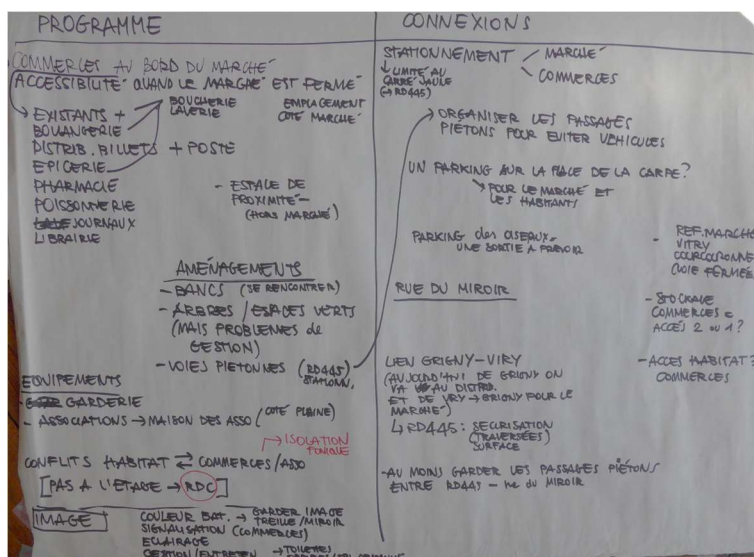 PROGRAMME
COMMERCES AU BORD DU MARCHÉ
ACCESSIBILITÉ QUAND LE MARCHÉ EST FERMÉ
EXISTANTS +
BOULANGERIE
BOUCHERIE
LAVERIE
EMPLACEMENT
COTÉ MARCHÉ
DISTRIB. BILLETS + POSTE
EPICERIE
PHARMACIE
POISSONNERIE
JOURNAUX
LIBRAIRIE
- ESPACE DE
PROXIMITÉ -
(HORS MARCHÉ)
AMÉNAGEMENTS
- BANCS (SE RENCONTRER)
- ARBRES / ESPACES VERTS
(MAIS PROBLEMES de
GESTION)
- VOIES PIETONNES (RD445)
STATIONN.
EQUIPEMENTS
- GARDERIE
- ASSOCIATIONS → MAISON DES ASSO (COTÉ PLAINE)
→ ISOLATION
CONFLITS HABITAT ⇄ COMMERCES/ASSO
[PAS A L'ETAGE → RDC]
IMAGE
COULEUR BAT. → GARDER IMAGE
TREILLE/MIROIR
SIGNALISATION (COMMERCES)
ECLAIRAGE
GESTION/ENTRETIEN → TOILETTES
CONNEXIONS
STATIONNEMENT
MARCHÉ
COMMERCES
↓ LIMITÉ AU
CARRÉ JAUNE
(→ RD445)
→ ORGANISER LES PASSAGES
PIÉTONS POUR EVITER VÉHICULES
UN PARKING SUR LA PLACE DE LA CARPE?
→ POUR LE MARCHÉ ET
LES HABITANTS
PARKING des OISEAUX -
UNE SORTIE A PREVOIR
- REF. MARCHÉ
VITRY
COURCOURONNE
RUE DU MIROIR
- STOCKAGE
COMMERCES =
ACCÈS 2 ou 1?
LIEN GRIGNY-VIRY
(AUJOURD'HUI DE GRIGNY ON
VA AU DISTRIB.
ET DE VIRY → GRIGNY POUR LE
MARCHÉ)
- ACCES HABITAT?
COMMERCES
↳ RD445: SECURISATION
(TRAVERSÉES)
SURFACE
- AU MOINS GARDER LES PASSAGES PIÉTONS
ENTRE RD445 - rue du MIROIR